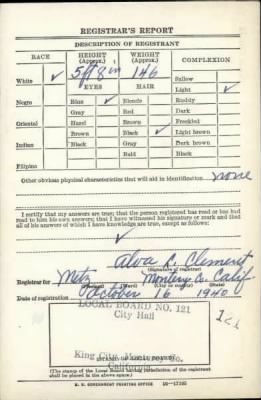 REGISTRAR'S REPORT
DESCRIPTION OF REGISTRANT
RACE HEIGHT (Approx.) WEIGHT (Approx.) COMPLEXION
5 ft 8 in 146
White ✓ Sallow
EYES HAIR Light ✓
Negro Blue ✓ Blonde Ruddy
Gray Red Dark
Oriental Hazel Brown Freckled
Brown Black ✓ Light brown
Indian Black Gray Dark brown
Bald Black
Filipino
Other obvious physical characteristics that will aid in identification none
I certify that my answers are true; that the person registered has read or has had
read to him his own answers; that I have witnessed his signature or mark and that
all of his answers of which I have knowledge are true, except as follows:
✓
Alva L. Clement
(Signature of registrar)
Registrar for Metz Monterey Co. Calif
(Precinct) (Ward) (City or county) (State)
Date of registration October 16 1940
LOCAL BOARD NO. 121
City Hall
King City, Monterey Co.
California
(STAMP OF LOCAL BOARD)
(The stamp of the Local Board having jurisdiction of the registrant
shall be placed in the above space.)
U. S. GOVERNMENT PRINTING OFFICE 16—17105